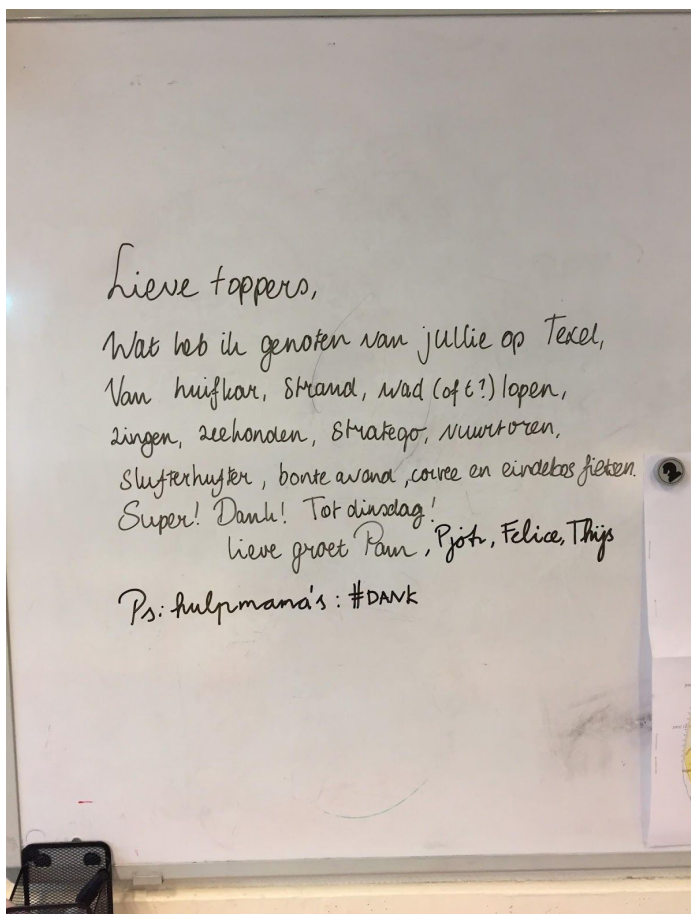 Lieve toppers,
Wat heb ik genoten van jullie op Texel,
Van huifkar, strand, wad (of t?) lopen,
zingen, zeehonden, stratego, vuurtoren,
slufterhufter, bonte avond, corvee en eindeloos fietsen.
Super! Dank! Tot dinsdag!
lieve groet Pam, Pjotr, Felice, Thijs
Ps: hulpmama's: #DANK